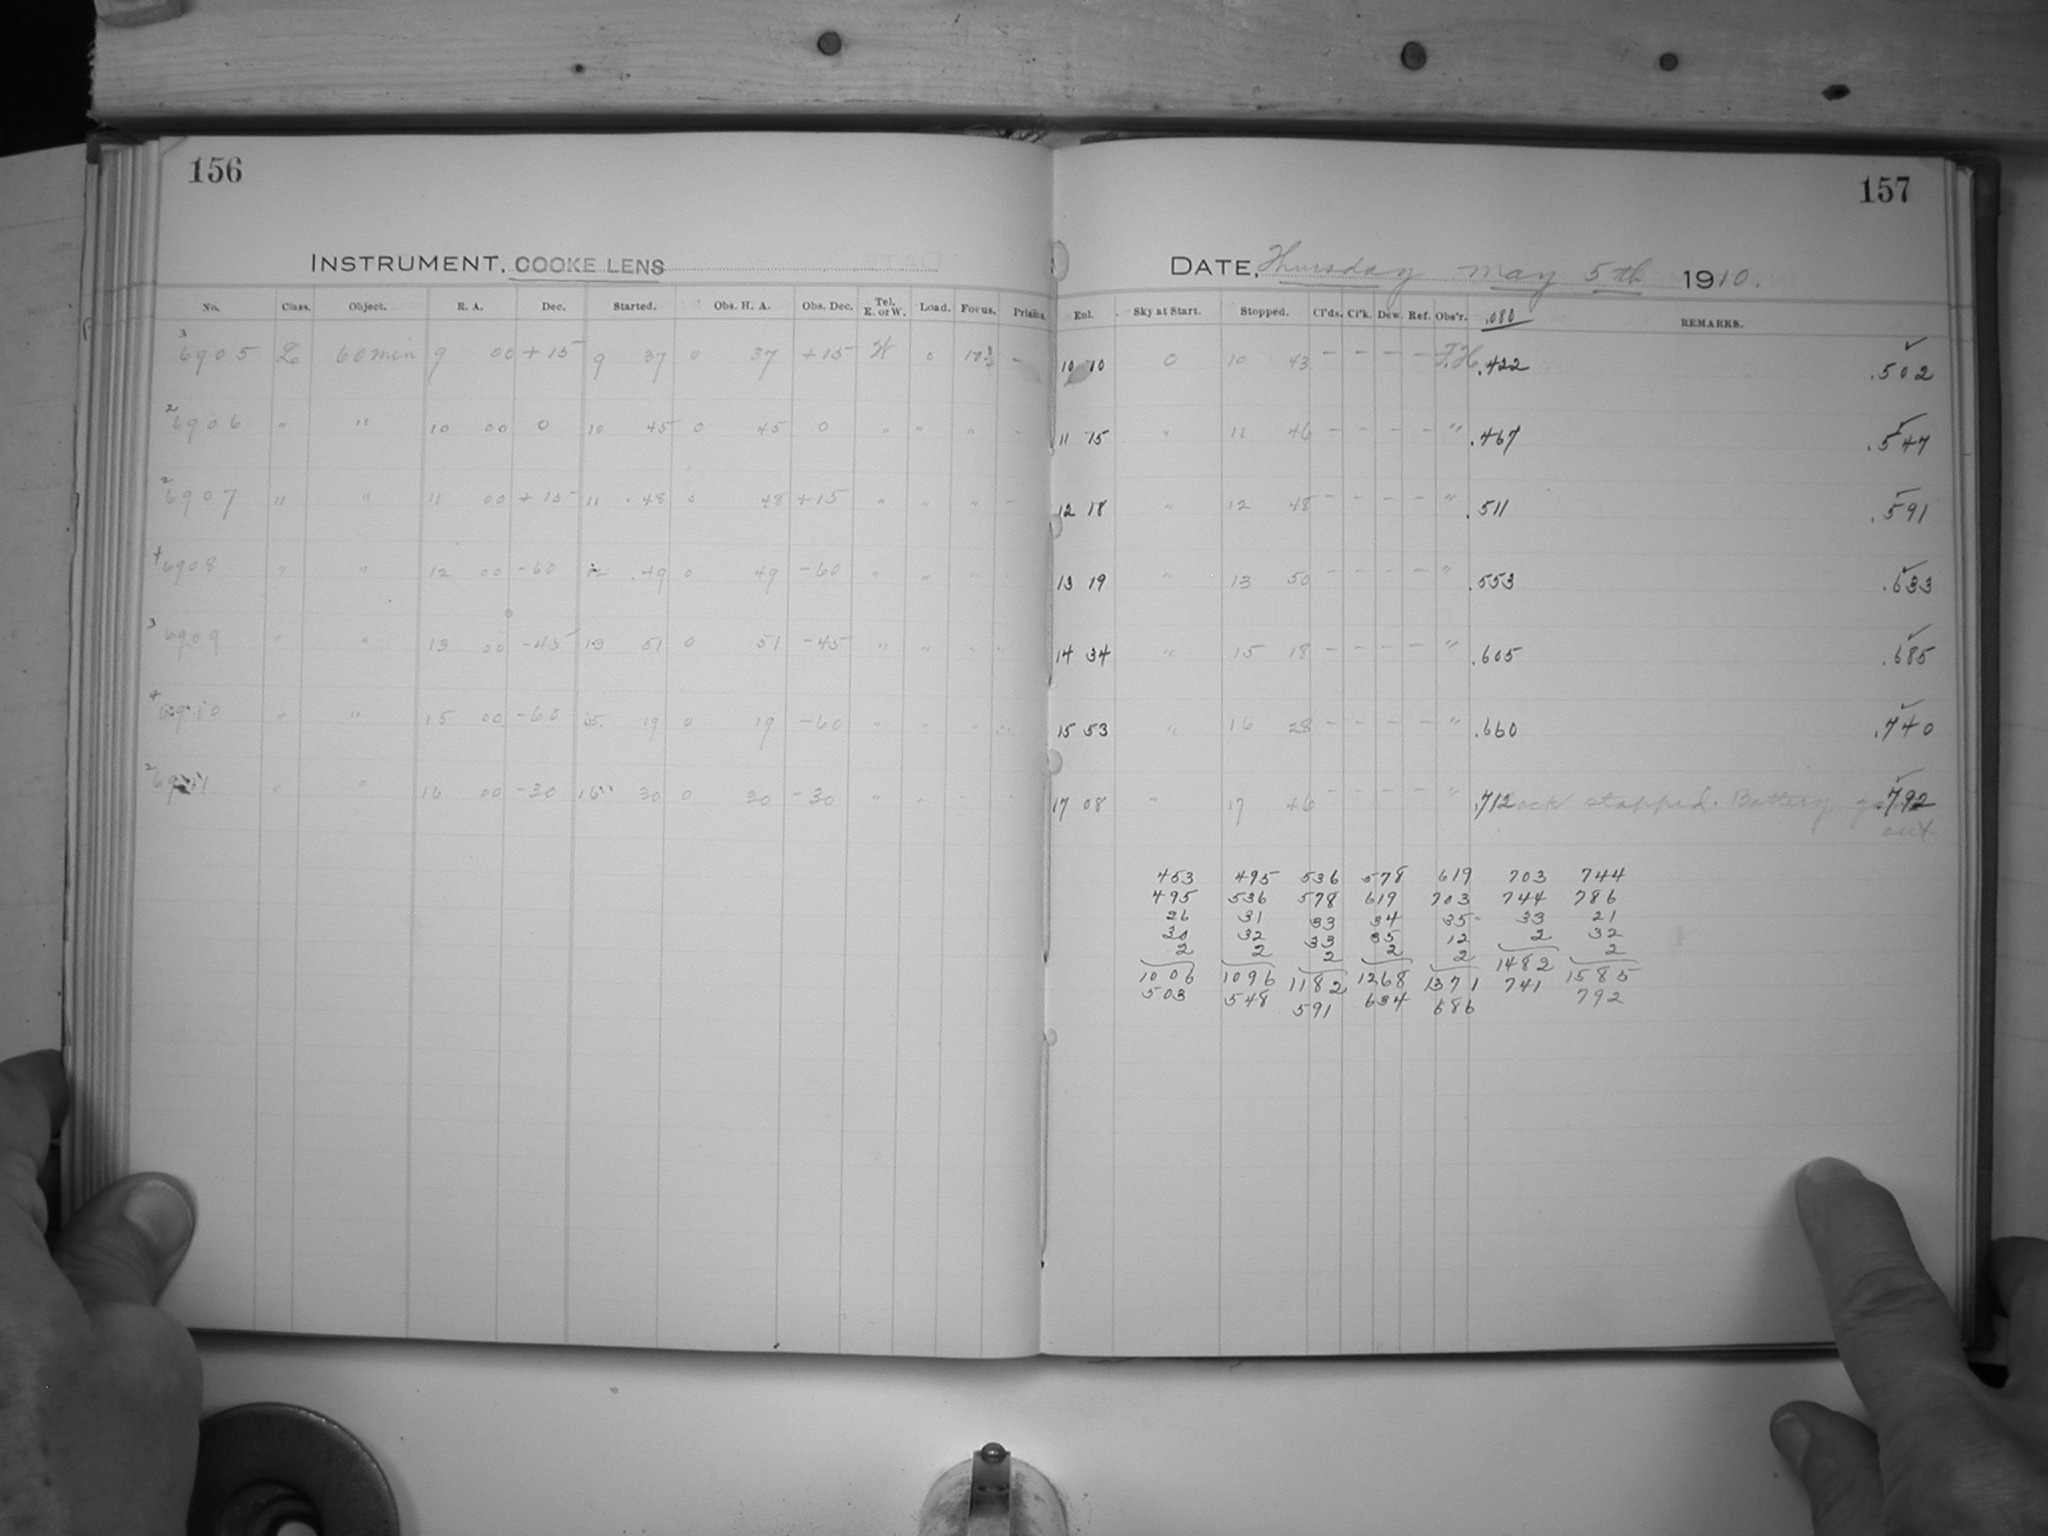 156
157
INSTRUMENT. COOKE LENS
DATE. Thursday May 5th 1910.
No. Class. Object. R. A. Dec. Started. Obs. H. A. Obs. Dec. Tel. E. or W. Load. Focus. Prisms. Enl. Sky at Start. Stopped. Cl'ds. Cl'k. Dew. Ref. Obs'r. .080 REMARKS.
3 6905 L 60 min 9 00 +15 9 37 0 37 +15 W 0 10 10 0 10 43 – – – – F.H. .422 .502
2 6906 " " 10 00 0 10 45 0 45 0 " " " - 11 15 " 11 46 – – – – " .467 .547
2 6907 " " 11 00 +15 11 48 0 48 +15 " " " - 12 18 " 12 48 – – – – " .511 .591
+ 6908 " " 12 00 -60 12 49 0 49 -60 " " " 13 19 " 13 50 – – – – " .553 .633
3 6909 " " 13 00 -45 13 51 0 51 -45 " " " " 14 34 " 15 18 – – – – " .605 .685
+ 6910 " " 15 00 -60 15 19 0 19 -60 " " " 15 53 " 16 28 – – – – " .660 .740
2 6911 " " 16 00 -30 16 30 0 30 -30 " 17 08 " 17 46 – – – – " .712 stopped. Battery .792
out
453 495 536 578 619 703 744
495 536 578 619 703 744 786
26 31 33 34 35 33 21
30 32 33 35 12 2 32
2 2 2 2 2 1482 2
1006 1096 1182 1268 1371 741 1585
503 548 591 634 686 792